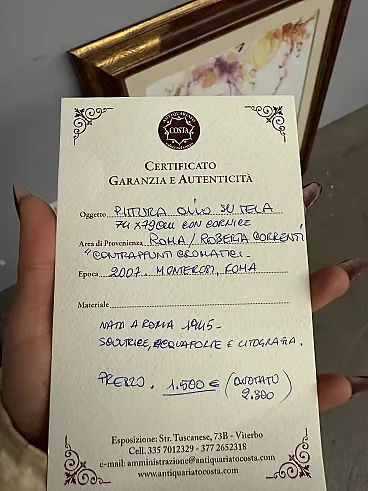 ANTIQUARIATO
COSTA
CERTIFICATO
GARANZIA E AUTENTICITÀ
Oggetto PITTURA OLIO SU TELA
74 X 79 CM CON CORNICE
Area di Provenienza ROMA / ROBERTA CORRENTI
"CONTRAPPUNTI CROMATICI"
Epoca 2007. MONTEROSI, ROMA
Materiale
NATA A ROMA 1945.
SCULTRICE, ACQUAFORTE E LITOGRAFIA.
PREZZO. 1.500 € (QUOTATO
2.800)
Esposizione: Str. Tuscanese, 73B - Viterbo
Cell. 335 7012329 - 377 2652318
e-mail: amministrazione@antiquariatocosta.com
www.antiquariatocosta.com